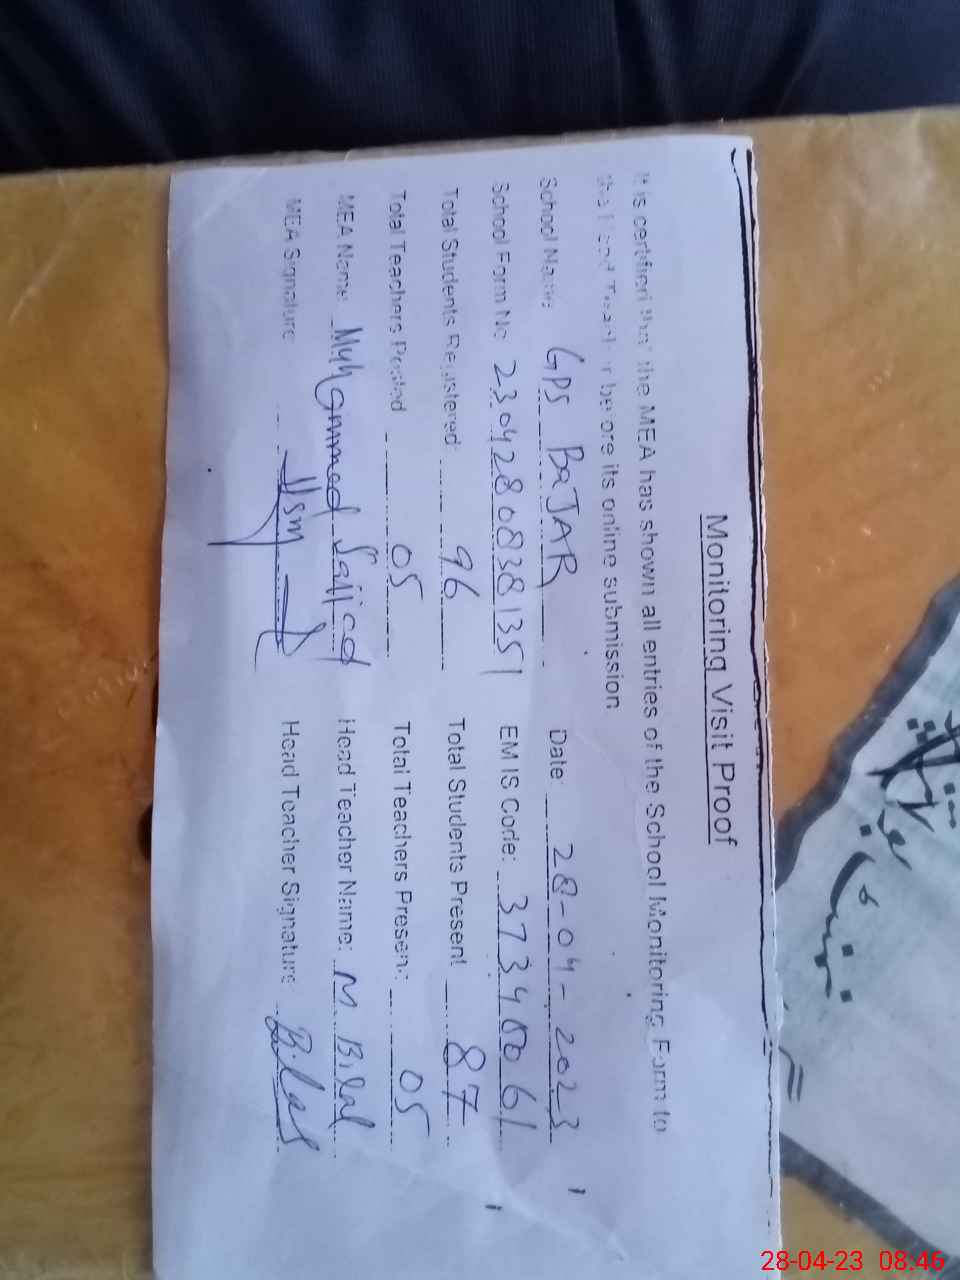 Monitoring Visit Proof
It is certified that the MEA has shown all entries of the School Monitoring Form to
the Head Teacher before its online submission
School Name: GPS BaJAR Date: 28-04-2023
School Form No: 23042808381351 EMIS Code: 37340061
Total Students Registered: 96 Total Students Present 87
Total Teachers Posted 05 Total Teachers Present: 05
MEA Name: Muhammad Sajjad Head Teacher Name: M Bilal
MEA Signature Head Teacher Signature Bilal
28-04-23 08:46